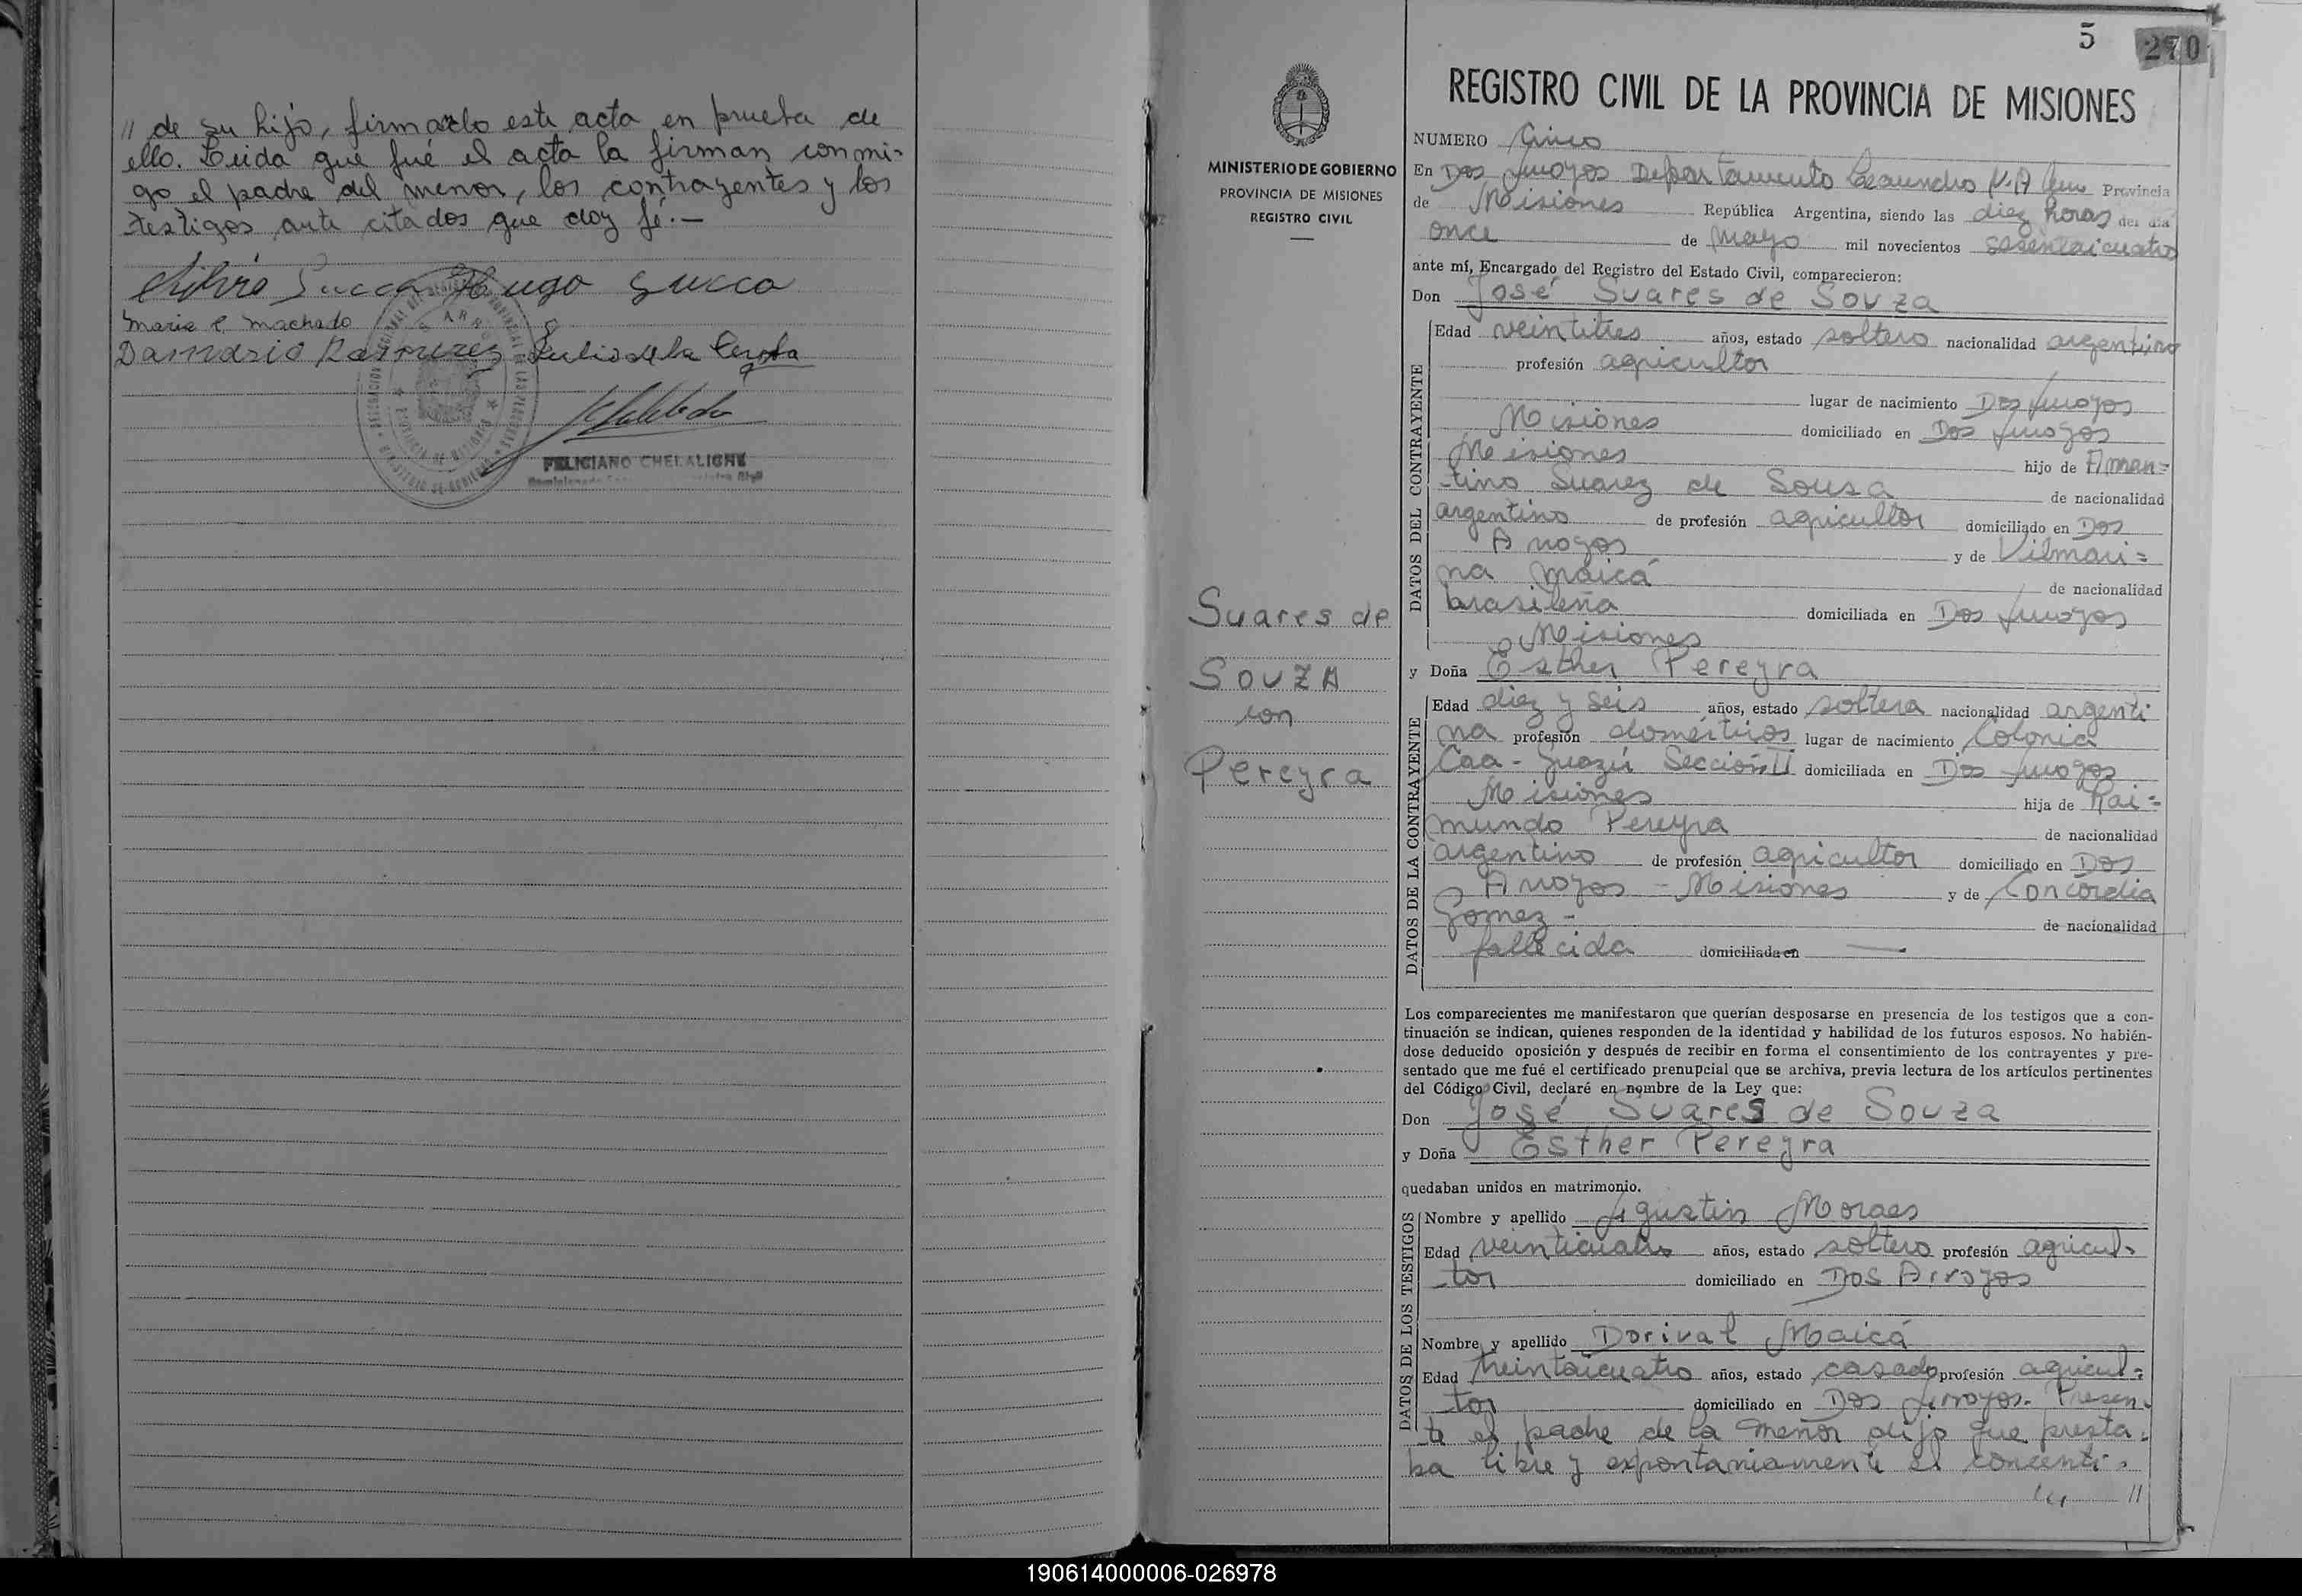 // de su hijo, firmado este acta en prueba de
ello. Leida que fué el acta la firman conmi-
go el padre del menor, los contrayentes y los
testigos ante citados que doy fé.—
Silvio Succa Hugo Succa
Maria C. Machado
Damasio Ramirez Julio de la
FELICIANO CHELALICHE
5
270
MINISTERIO DE GOBIERNO
PROVINCIA DE MISIONES
REGISTRO CIVIL
Suares de
SOUZA
con
Pereyra
REGISTRO CIVIL DE LA PROVINCIA DE MISIONES
NUMERO Cinco
En Dos Arroyos Departamento Leandro N. A Provincia
de Misiones República Argentina, siendo las diez horas del día
once de Mayo mil novecientos sesentaicuatro
ante mí, Encargado del Registro del Estado Civil, comparecieron:
Don José Suares de Souza
DATOS DEL CONTRAYENTE
Edad veintitres años, estado soltero nacionalidad argentino
profesión agricultor
lugar de nacimiento Dos Arroyos
Misiones domiciliado en Dos Arroyos
Misiones hijo de Aman=
tino Suarez de Sousa de nacionalidad
argentino de profesión agricultor domiciliado en Dos
Arroyos y de Vilmari=
na Maicá de nacionalidad
brasileña domiciliada en Dos Arroyos
Misiones
y Doña Esther Pereyra
DATOS DE LA CONTRAYENTE
Edad diez y seis años, estado soltera nacionalidad argenti
na profesión domésticos lugar de nacimiento Colonia
Caa-Guazú Sección II domiciliada en Dos Arroyos
Misiones hija de Rai=
mundo Pereyra de nacionalidad
argentino de profesión agricultor domiciliado en Dos
Arroyos - Misiones y de Concordia
Gomez - de nacionalidad
fallecida domiciliada en —
Los comparecientes me manifestaron que querían desposarse en presencia de los testigos que a con-
tinuación se indican, quienes responden de la identidad y habilidad de los futuros esposos. No habién-
dose deducido oposición y después de recibir en forma el consentimiento de los contrayentes y pre-
sentado que me fué el certificado prenupcial que se archiva, previa lectura de los artículos pertinentes
del Código Civil, declaré en nombre de la Ley que:
Don José Suares de Souza
y Doña Esther Pereyra
quedaban unidos en matrimonio.
DATOS DE LOS TESTIGOS
Nombre y apellido Agustin Moraes
Edad veinticuatro años, estado soltero profesión agricul-
tor domiciliado en Dos Arroyos
Nombre y apellido Dorival Maicá
Edad treintaicuatro años, estado casado profesión agricul=
tor domiciliado en Dos Arroyos. Presen-
te el padre de la menor dijo que presta-
ba libre y espontaniamente el concenti-
//
190614000006-026978